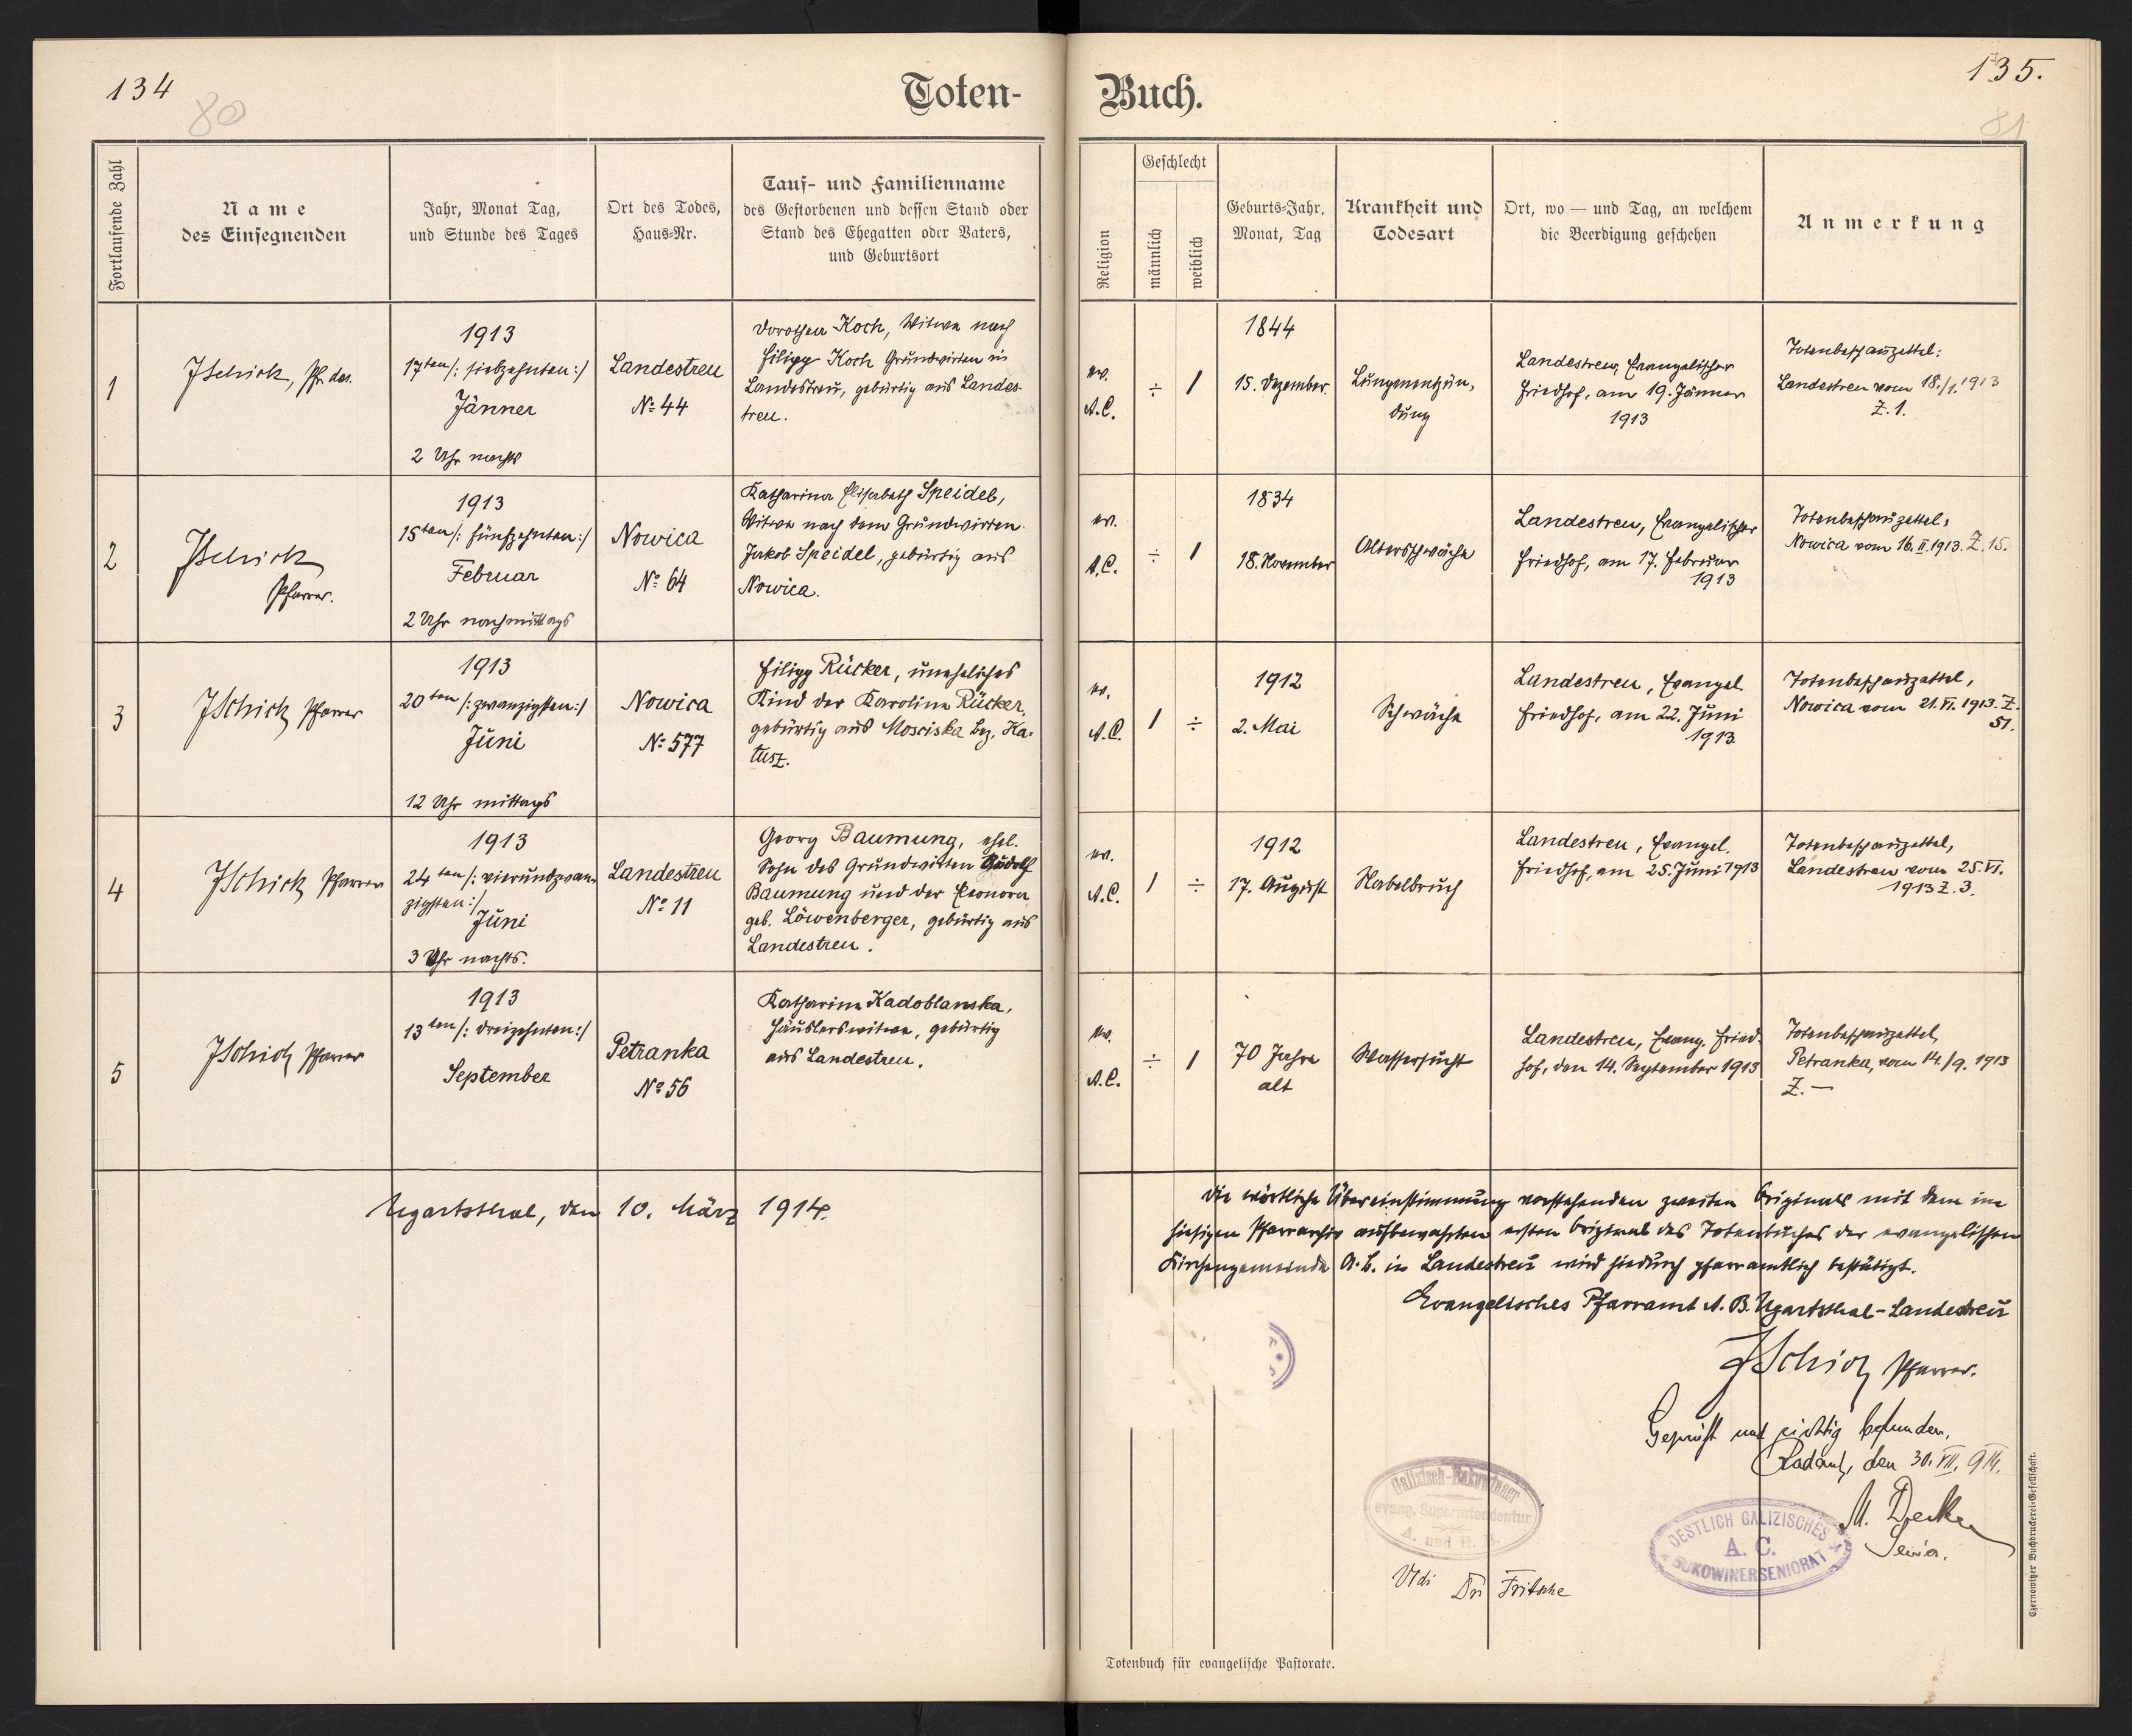 134
80
Toten-
Fortlaufende Zahl
Name
des Einsegnenden
Jahr, Monat Tag,
und Stunde des Tages
Ort des Todes,
Haus-Nr.
Tauf- und Familienname
des Gestorbenen und dessen Stand oder
Stand des Ehegatten oder Vaters,
und Geburtsort
1
JSchick, Pfr. des.
1913
17ten /: siebzehnten :/
Jänner
2 Uhr nachts
Landestreu
No 44
Dorothea Koch, Witwe nach
Filipp Koch Grundwirten in
Landestreu, gebürtig aus Landes-
treu.
2
JSchick
Pfarrer.
1913
15ten /: fünfzehnten :/
Februar
2 Uhr nachmittags
Nowica
No 64
Katharina Elisabeth Speidel,
Witwe nach dem Grundwirten
Jakob Speidel, gebürtig aus
Nowica.
3
JSchick Pfarrer
1913
20ten /: zwanzigsten :/
Juni
12 Uhr mittags
Nowica
No 577
Filipp Rücker, uneheliches
Kind der Karolina Rücker,
gebürtig aus Mosciska bez. Ka-
łusz.
4
JSchick Pfarrer
1913
24ten /: vierundzwan-
zigsten :/
Juni
3 Uhr nachts.
Landestreu
No 11
Georg Baumung, ehel.
Sohn des Grundwirten Rudolf
Baumung und der Eleonora
geb. Löwenberger, gebürtig aus
Landestreu.
5
JSchick Pfarrer
1913
13ten /: dreizehnten :/
September
Petranka
No 56
Katharina Kadoblanska,
Häuslerswitwe, gebürtig
aus Landestreu.
Ugartsthal, den 10. März 1914.
135.
81
Buch.
Religion
Geschlecht
männlich
weiblich
Geburts-Jahr,
Monat, Tag
Krankheit und
Todesart
Ort, wo — und Tag, an welchem
die Beerdigung geschehen
Anmerkung
ev.
A.C.
÷
1
1844
15. Dezember.
Lungenentzün-
dung
Landestreu, Evangelischer
Friedhof, am 19. Jänner
1913
Totenbeschauzettel:
Landestreu vom 18./1. 1913
Z. 1.
ev.
A.C.
÷
1
1834
18. November
Altersschwäche
Landestreu, Evangelischer
Friedhof, am 17. Februar
1913
Totenbeschauzettel,
Nowica vom 16. II. 1913. Z. 15.
ev.
A.C.
1
÷
1912
2. Mai
Schwäche
Landestreu, Evangel.
Friedhof, am 22. Juni
1913.
Totenbeschauzettel,
Nowica vom 21. VI. 1913. Z.
51.
ev.
A.C.
1
÷
1912
17. August
Nabelbruch
Landestreu, Evangel.
Friedhof, am 25. Juni 1913
Totenbeschauzettel,
Landestreu vom 25. VI.
1913 Z. 3.
ev.
A.C.
÷
1
70 Jahre
alt
Wassersucht
Landestreu, Evang. Fried-
hof, den 14. September 1913
Totenbeschauzettel,
Petranka, vom 14./9. 1913
Z. —
Die wörtliche Übereinstimmung vorstehenden zweiten Originals mit dem im
hiesigen Pfarrarchiv aufbewahrten ersten Original des Totenbuches der evangelischen
Kirchengemeinde A.B. in Landestreu wird hiedurch pfarramtlich bestätigt.
Evangelisches Pfarramt A.B. Ugartsthal-Landestreu
JSchick Pfarrer.
Geprüft und richtig befunden,
Radautz, den 30. VII. 914.
M. Decker
Senior.
OESTLICH GALIZISCHES
A. C.
BUKOWINER SENIORAT
Galizisch-Bukowinaer
evang. Superintendentur
A. und H. B.
Vidi Dr. Fritsche
Totenbuch für evangelische Pastorate.
Czernowitzer Buchdruckerei-Gesellschaft.